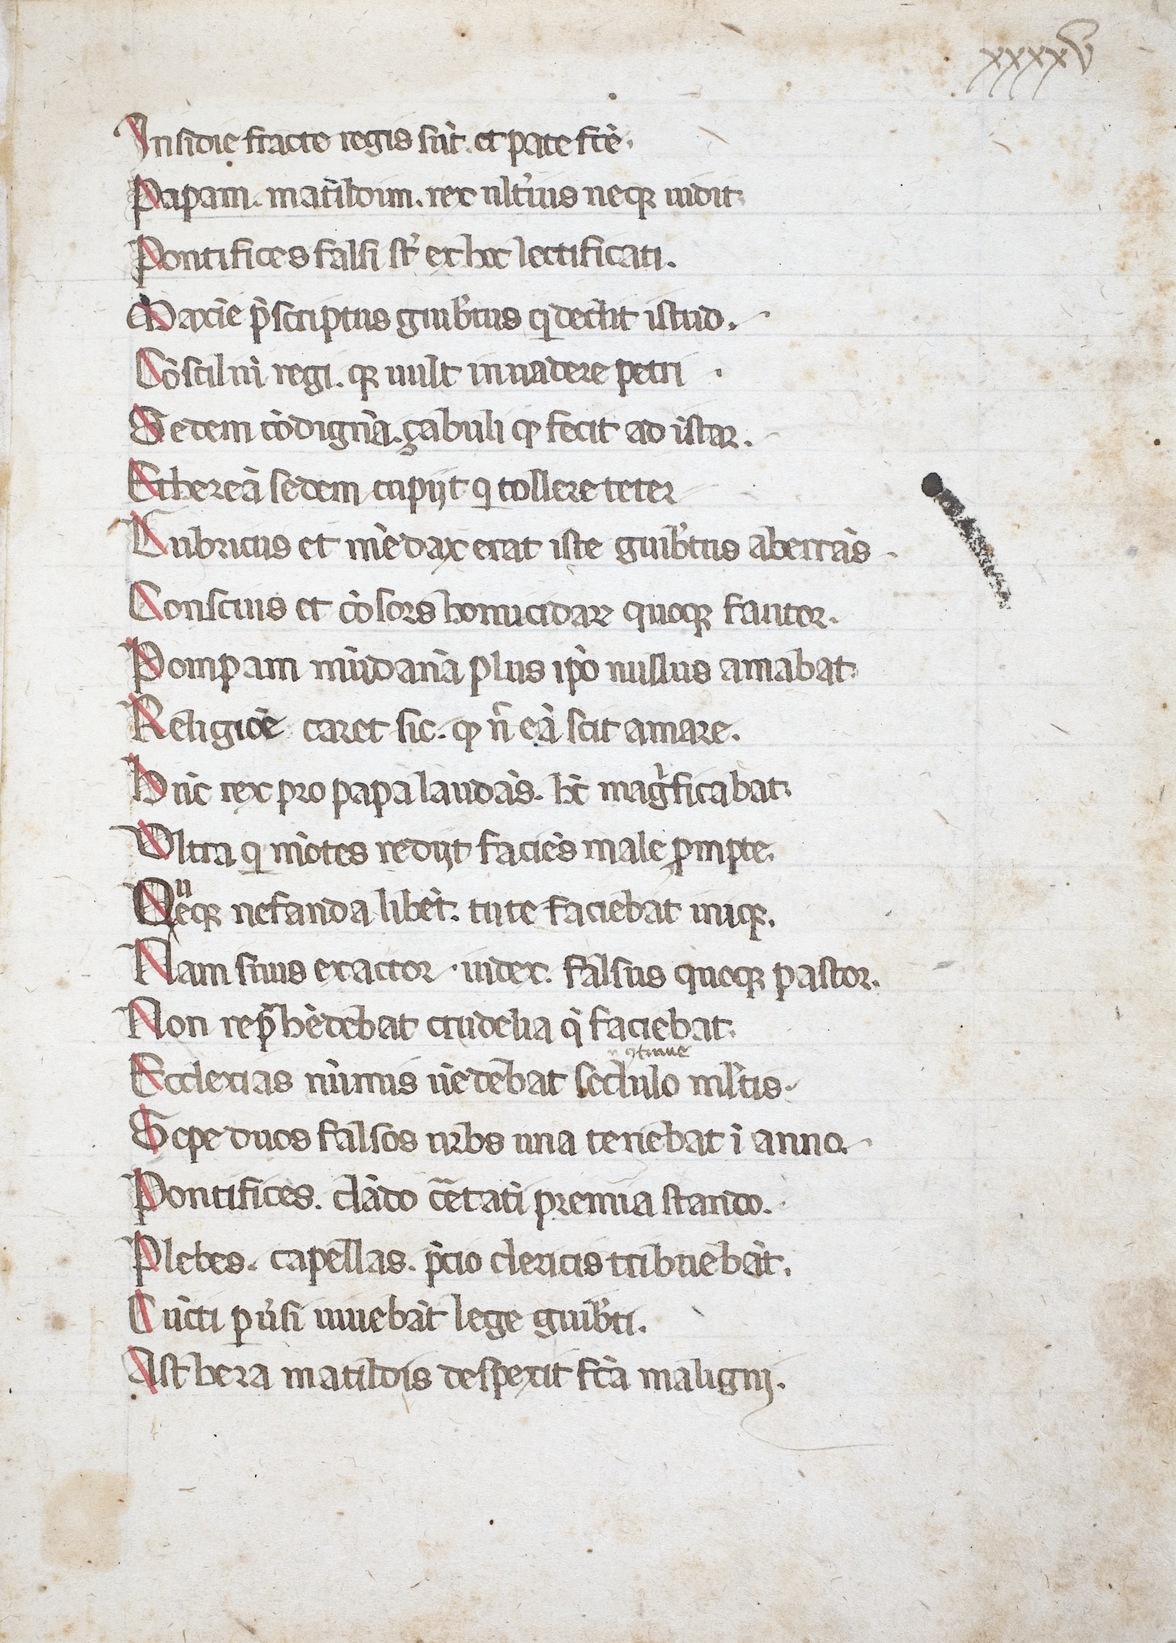 xxxxv
Insidie fracte regis sūt. et pate fctē.
Papam. matildim. rex ult'ius neqꝫ uidit.
Pontifices falsi st' ex hoc lectificati.
Maxīe p̄scriptus guib'tus q dedit istud.
Cōsciliū regi. qꝫ uult inuadere petri
Sedem cōdignā. çabuli qꝫ fecit ad istar.
Ethereā sedem cupijt q tollere teter
Lubricus et mēdax erat iste guib'tus aberrās
Conscius et cōsors homicidaꝝ quoqꝫ fautor.
Pompam mūdanā plus ip̄o nullus amabat.
Religiōe caret sic. qꝫ n̄ eā scit amare.
Hūc rex pro papa laudās. hc̄ magⁱficabat.
Ultra q mōtes redijt faciēs male p̱mpte.
Queqꝫ nefanda libēt. tute faciebat iniqꝫ.
Nam suus exactor. uidex. falsus quoqꝫ pastor.
Non rep̄hēdebat crudelia q̄ faciebat.
ꝯtinue
Ecclexias nūmis uēdebat sedulo ml'tis.
Sepe duos falsos urbs una tenebat ī anno.
Pontifices. clādo c̄tetati premia stando.
Plebes. capellas. p̄cio clericis tribuebāt.
Cūcti p̱uisi uiuebāt lege guib'ti.
Ast hera matildis despexit fctā maligni.